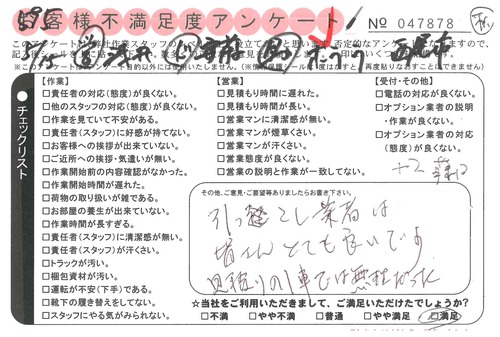 お客様不満足度アンケート
No 047878
【作業】
□責任者の対応(態度)が良くない。
□他のスタッフの対応(態度)が良くない。
□作業を見ていて不安がある。
□責任者(スタッフ)に好感が持てない。
□お客様への挨拶が出来ていない。
□ご近所への挨拶・気遣いが無い。
□作業開始前の内容確認がなかった。
□作業開始時間が遅れた。
□荷物の取り扱いが雑である。
□お部屋の養生が出来ていない。
□作業時間が長すぎる。
□責任者(スタッフ)に清潔感が無い。
□責任者(スタッフ)が汗くさい。
□トラックが汚い。
□梱包資材が汚い。
□運転が不安(下手)である。
□靴下の履き替えをしてない。
□スタッフにやる気がみられない。
【営業】
□見積もり時間に遅れた。
□見積もり時間が長い。
□営業マンに清潔感が無い。
□営業マンが煙草くさい。
□営業マンが汗くさい。
□営業態度が良くない。
□営業の説明と作業が一致してない。
【受付・その他】
□電話の対応が良くない。
□オプション業者の説明
・作業が良くない。
□オプション業者の対応
(態度)が良くない。
チェックリスト
その他、ご意見・ご要望等ありましたらお書き下さい。
引っ越こし業者は
皆さんとても良いです
見積りの1車では無理だった
☆当社をご利用いただきまして、ご満足いただけたでしょうか?
□不満 □やや不満 □普通 □やや満足 □満足